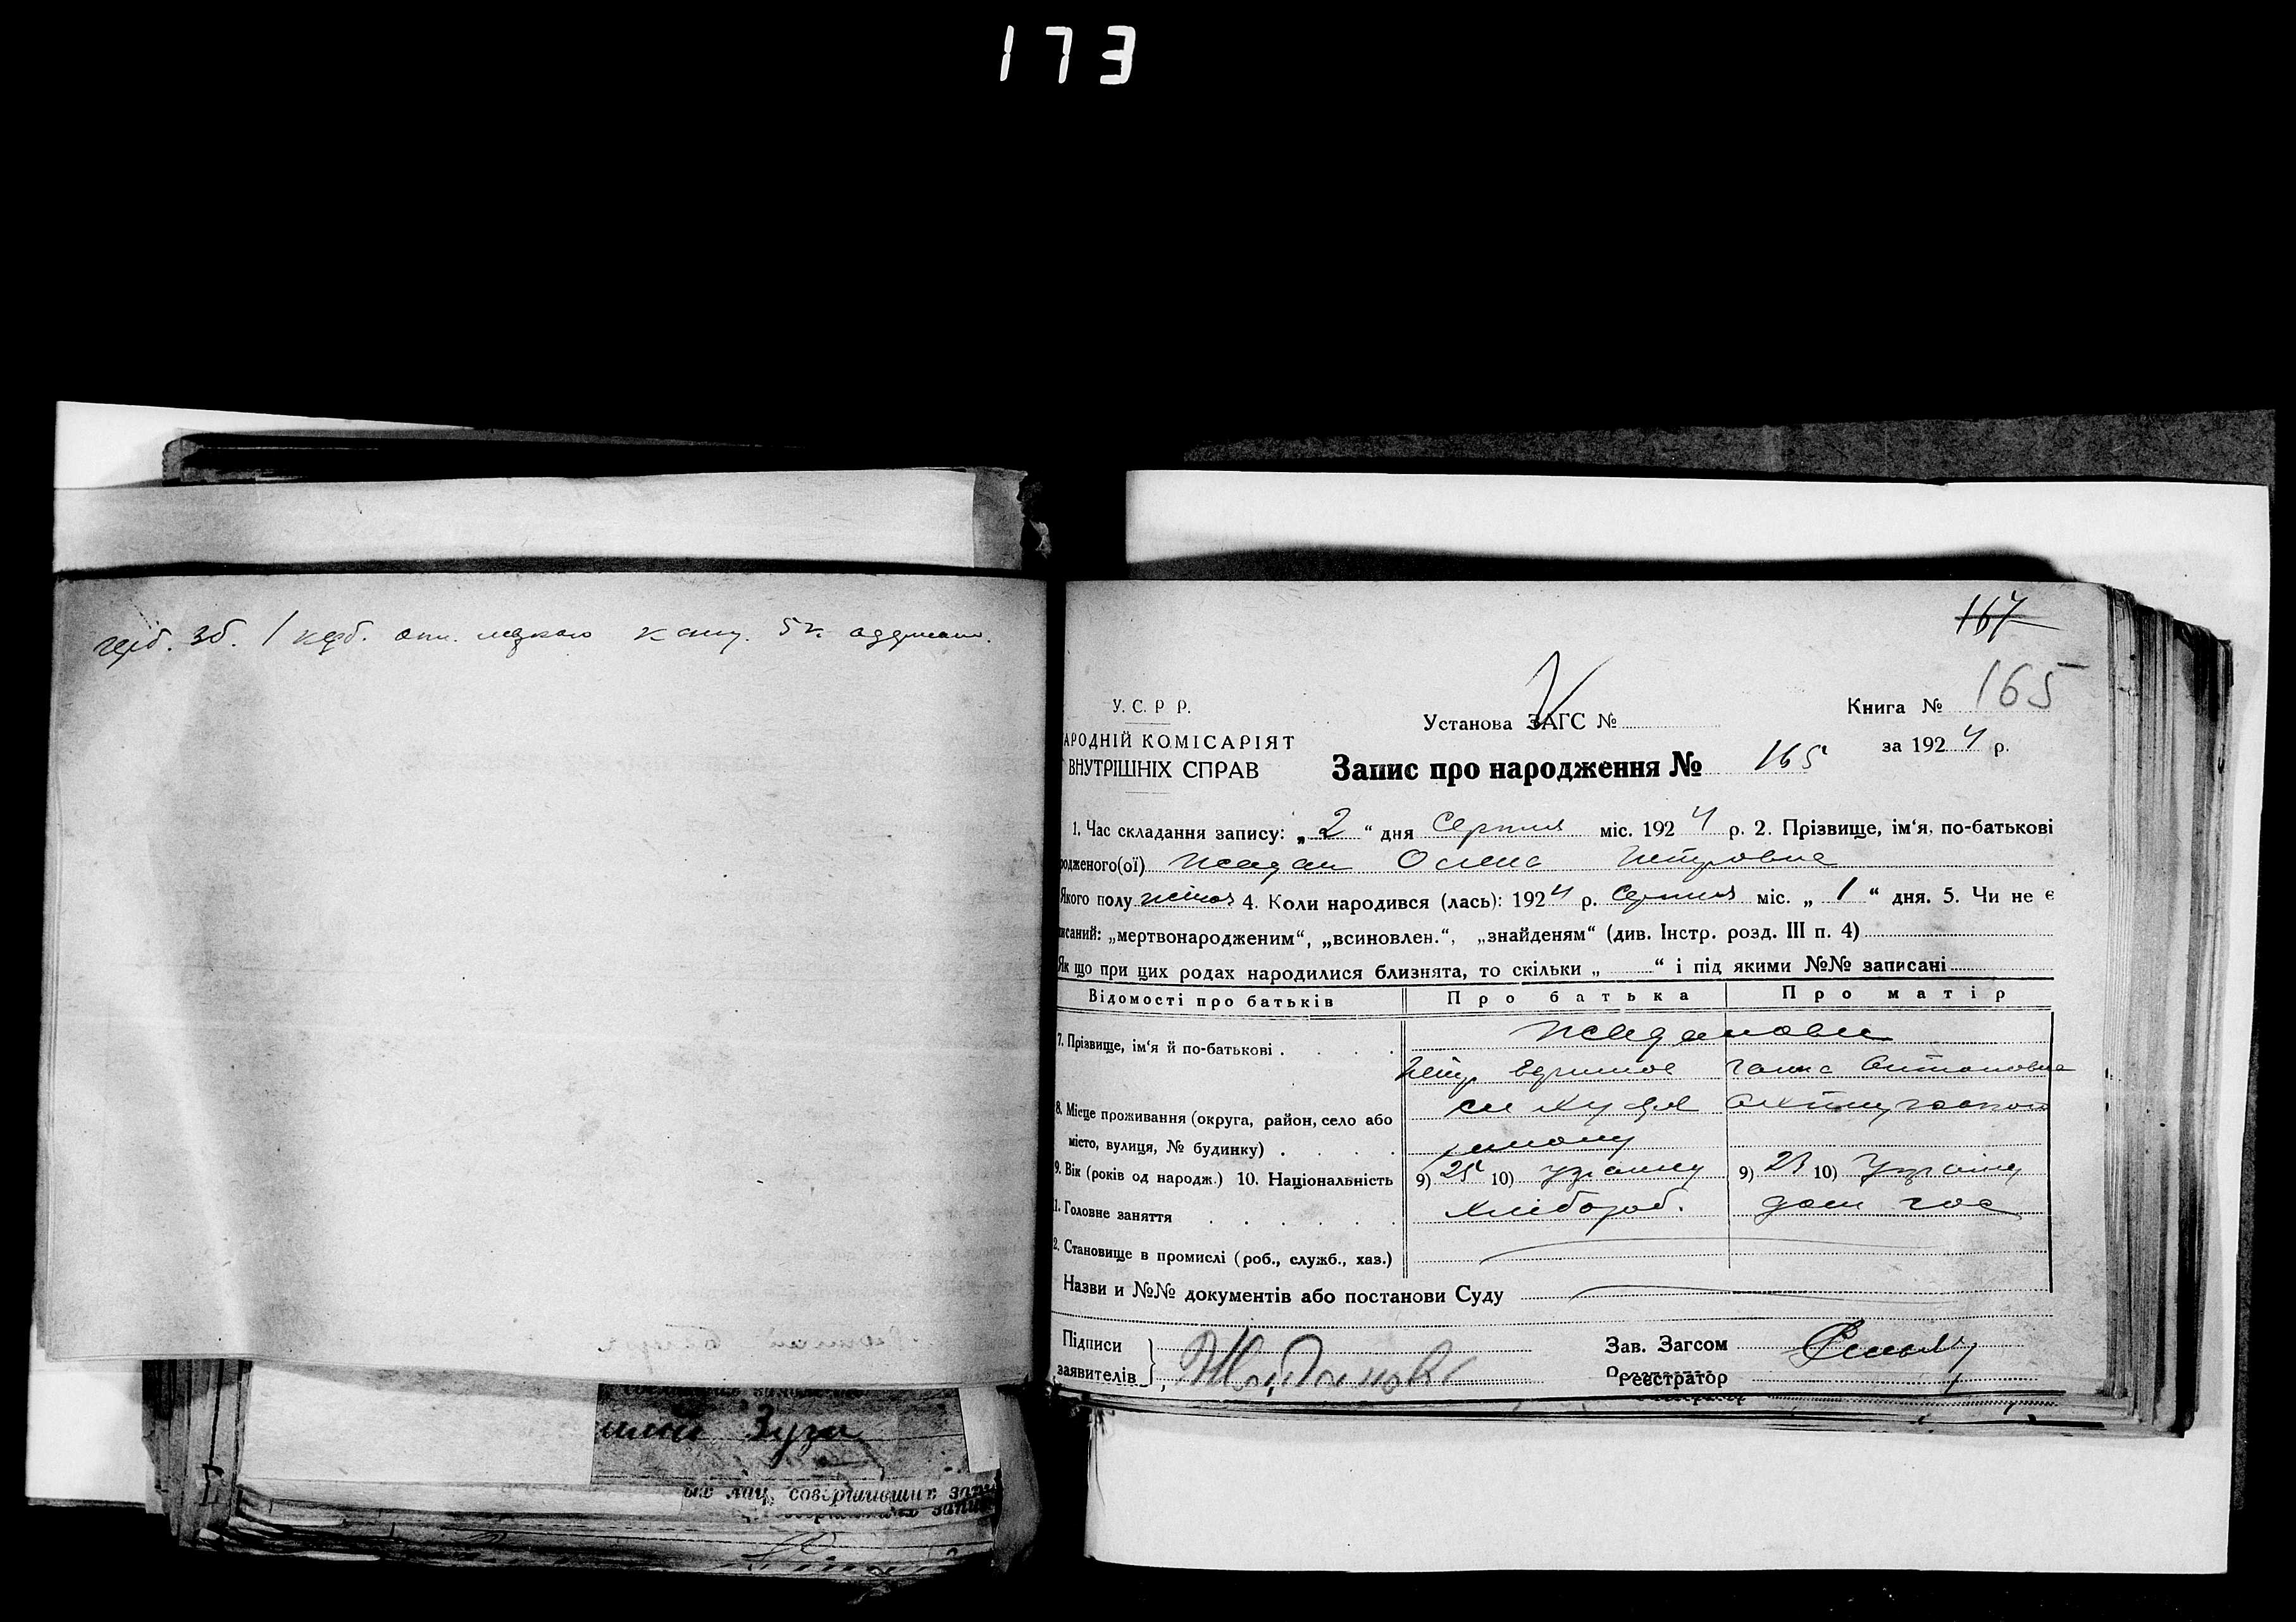 173
герб. зб. 1 карб. 5 к. одержано.
167
165
У. С. Р. Р.
АРОДНІЙ КОМІСАРІЯТ
ВНУТРІШНІХ СПРАВ
Установа ЗАГС №
Книга №
за 1924 р.
Запис про народження № 165
1. Час складання запису: „2“ дня Серпня міс. 1924 р. 2. Прізвище, ім'я, по-батькові
родженого(ої) Жадан Олена Петровна
Якого полу жіноч 4. Коли народився (лась): 1924 р. Серпня міс. „1“ дня. 5. Чи не є
писаний: „мертвонародженим“, „всиновлен.“, „знайденям“ (див. Інстр. розд. III п. 4)
Як що при цих родах народилися близнята, то скільки „ “ і під якими №№ записані
Відомості про батьків Про батька Про матір
7. Прізвище, ім'я й по-батькові . . . . Жаданови
Петр Ганна Антоновна
8. Місце проживання (округа, район, село або
місто, вулиця, № будинку) . . . .
9. Вік (років од народж.) 10. Національність 9) 25 10) україну 9) 23 10) Україну
11. Головне заняття . . . . . . Хлібороб. дом гос
2. Становище в промислі (роб., служб., хаз.)
Назви и №№ документів або постанови Суду
Підписи
заявителів
Зав. Загсом
Реєстратор
Зуги
их лиц, совершивших запи